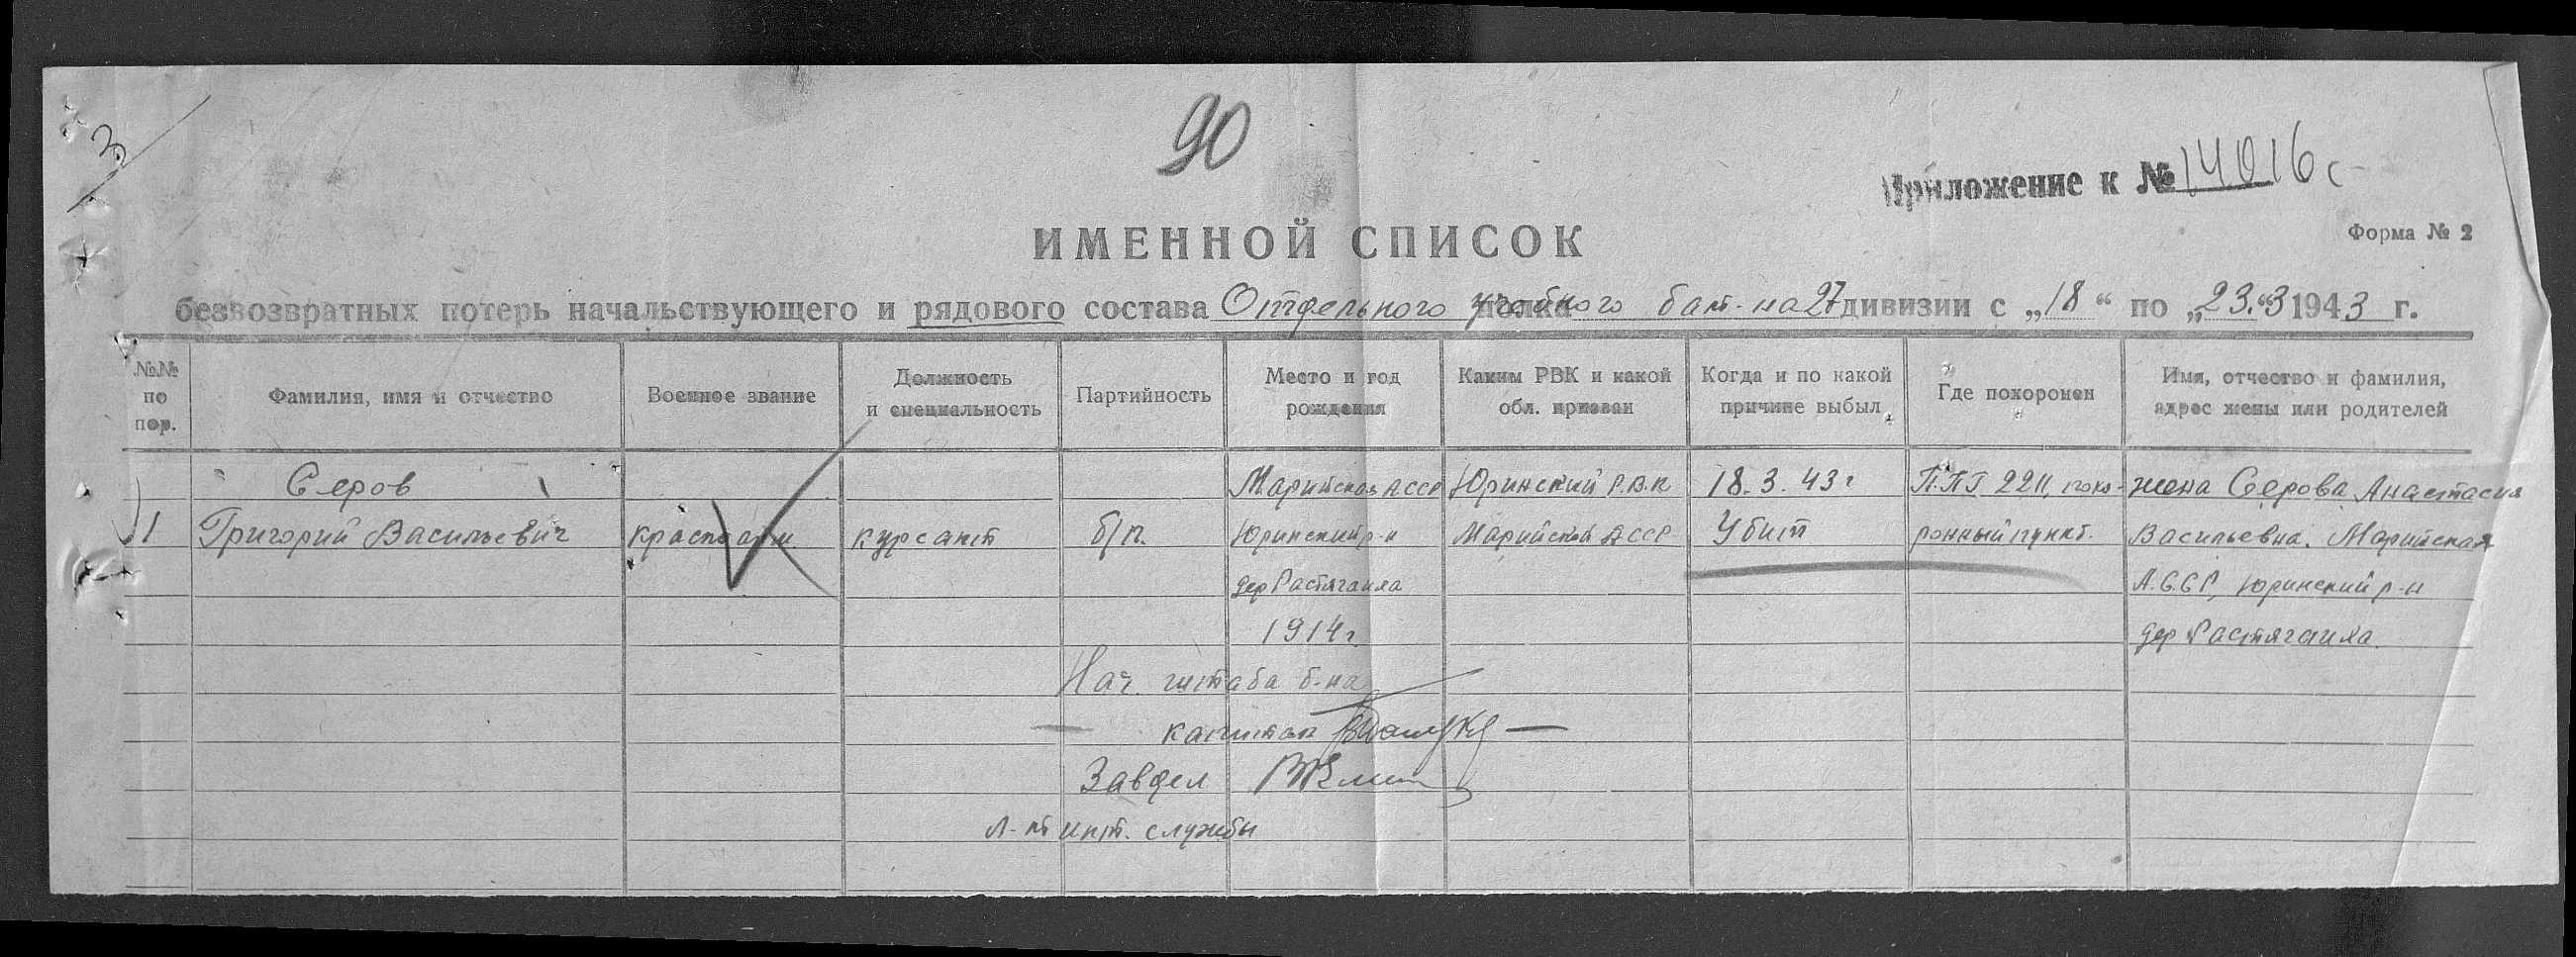 3
90
Приложение к № 14016с
Форма № 2
ИМЕННОЙ СПИСОК
безвозвратных потерь начальствующего и рядового состава Отдельного учебного полка бат-на 27 дивизии с „18“ по „23.“3 1943 г.
№№ по пор.
Фамилия, имя и отчество
Военное звание
Должность и специальность
Партийность
Место и год рождения
Каким РВК и какой обл. призван
Когда и по какой причине выбыл
Где похоронен
Имя, отчество и фамилия, адрес жены или родителей
Серов Марийская АССР Юринский Р.В.К 18.3.43г П.П.Г. 2211, похо- жена Серова Анастасия
1 Григорий Васильевич красноарм курсант б/п. Юринский р-н Марийской АССР Убит ронный пункт. Васильевна. Марийская
дер Растягаиха А.ССР, Юринский р-н
1914г дер Растягаиха.
Нач. штаба б-на
капитан
Завдел
л-нт инт. службы